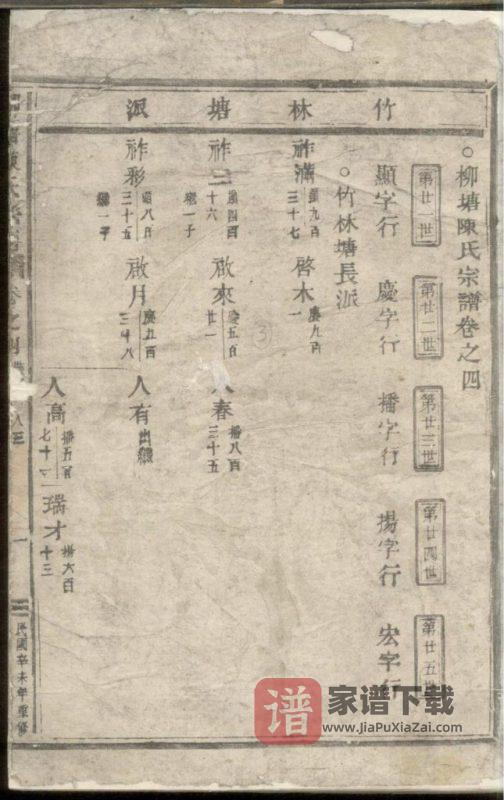 竹林塘派
○柳塘陳氏宗譜卷之四
第廿一世
第廿二世
第廿三世
第廿四世
第廿五世
顯字行
慶字行
播字行
揚字行
宏字行
○竹林塘長派
祚滿
顯九百
三十七
啓木
慶九百
一
祚三
顯四百
十六
啟來
慶五百
廿一
人春
播八百
三十五
祚彩
顯八百
三十五
啟月
慶五百
三十八
人有
出繼
人高
播五百
七十
瑞才
揚六百
十三
卷之四
一
民國辛未年重修
③
譜
家谱下载
www.JiaPuXiaZai.com